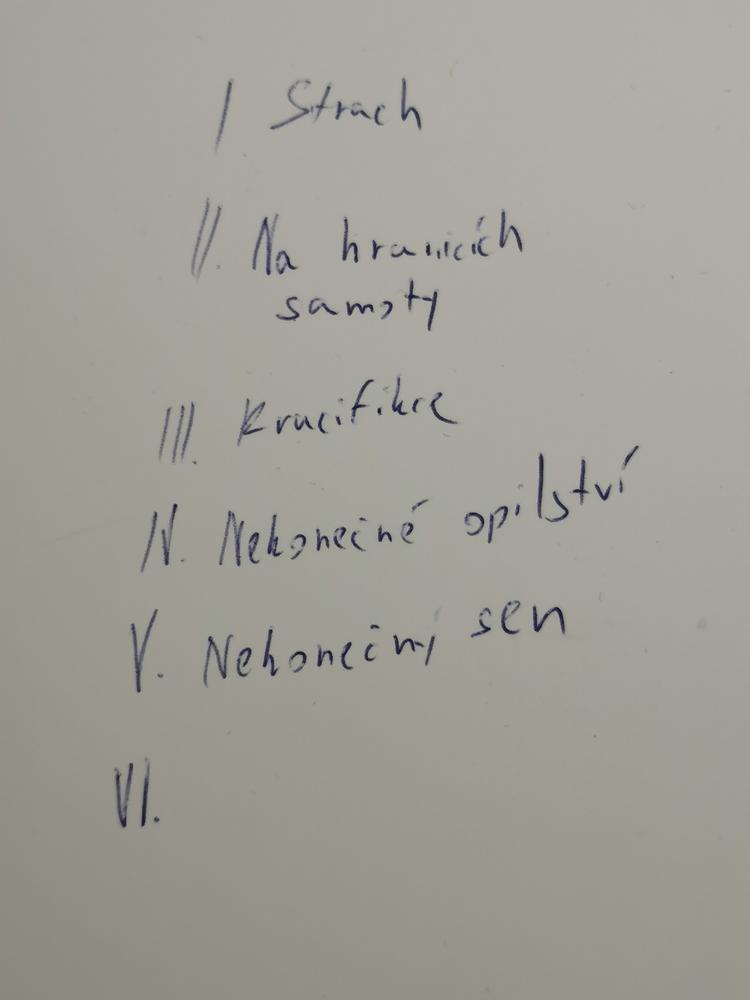 I Strach
II. Na hranicích
samoty
III. Krucifikce
IV. Nekonečné opilství
V. Nekonečný sen
VI.